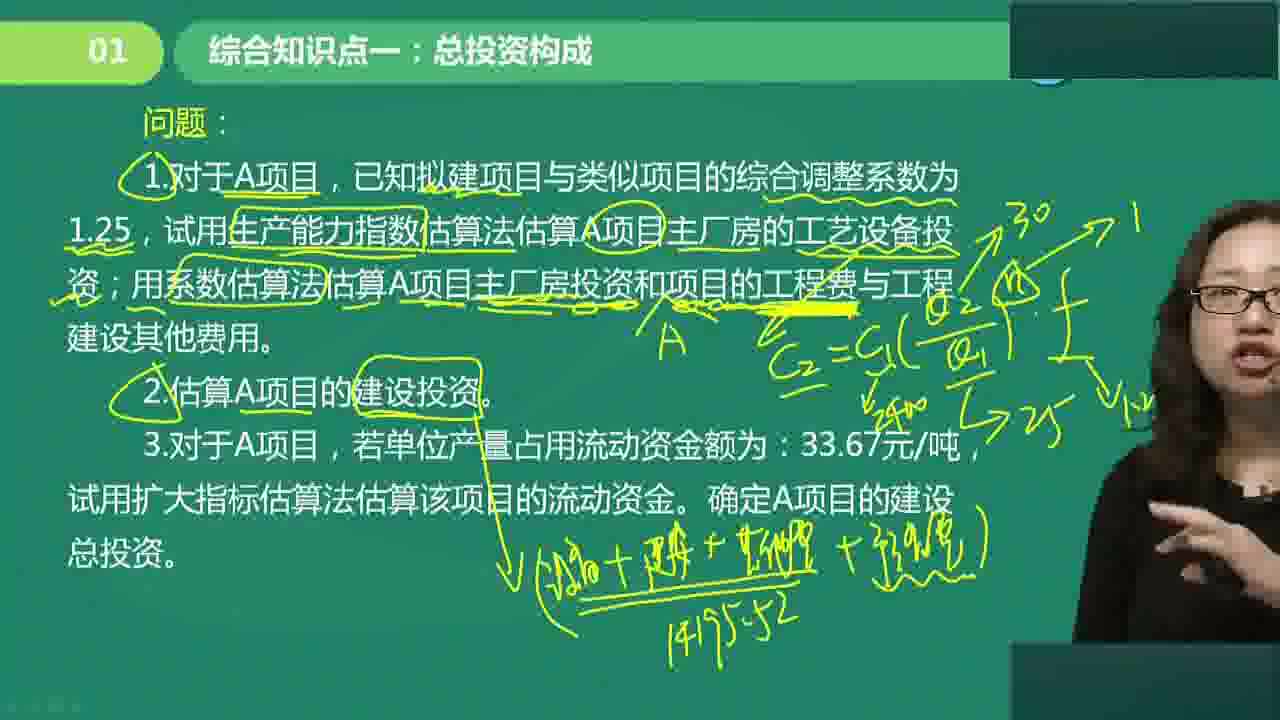 01 综合知识点一：总投资构成
问题：
1.对于A项目，已知拟建项目与类似项目的综合调整系数为
1.25，试用生产能力指数估算法估算A项目主厂房的工艺设备投
资；用系数估算法估算A项目主厂房投资和项目的工程费与工程
建设其他费用。
2.估算A项目的建设投资。
3.对于A项目，若单位产量占用流动资金额为：33.67元/吨，
试用扩大指标估算法估算该项目的流动资金。确定A项目的建设
总投资。
30
1
C2=C1(Q2/Q1)^n·f
2400
25
A
14195.52